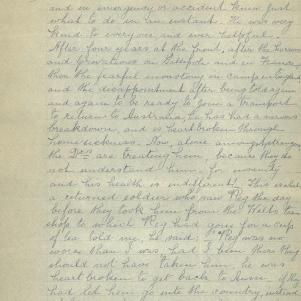 and in emergency or accident knew just
what to do in an instant. He was very
kind to everyone and ever helpful.
After four years at the front, after the horrors
and privations on Gallipoli and in France,
then the fearful monotony in camp in England
and the disappointment after being told again
and again to be ready to join a Transport
to return to Australia, he has had a nervous
breakdown, and is heartbroken through
homesickness. Now, alone amongst strangers
the Drs are treating him, because they do
not understand him, for insanity
and his health is indifferent. This
a returned soldier who saw Reg the day
before they took him from the
shop to which Reg had gone for a cup
of tea told me, he said, "Reg was no
worse than I was, had I been there they
should not have taken him, he was
heartbroken to get back to home, if they
had let him go into the country, instead